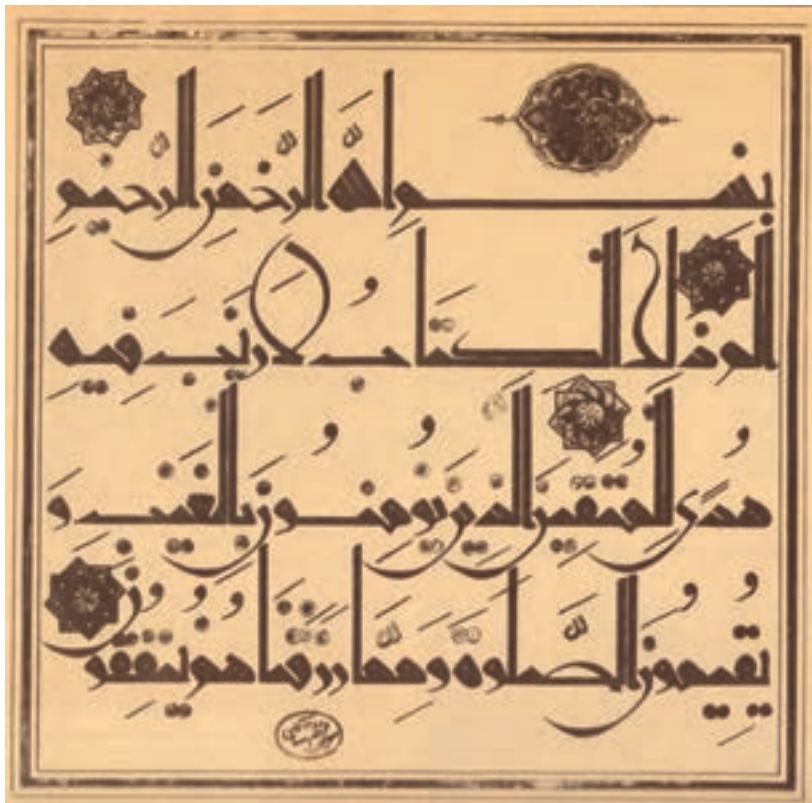 بِسْمِ اللهِ الرَّحْمٰنِ الرَّحِيمِ
الم ذٰلِكَ الْكِتَابُ لَا رَيْبَ فِيهِ
هُدًى لِلْمُتَّقِينَ الَّذِينَ يُؤْمِنُونَ بِالْغَيْبِ وَ
يُقِيمُونَ الصَّلٰوةَ وَمِمَّا رَزَقْنَاهُمْ يُنْفِقُونَ